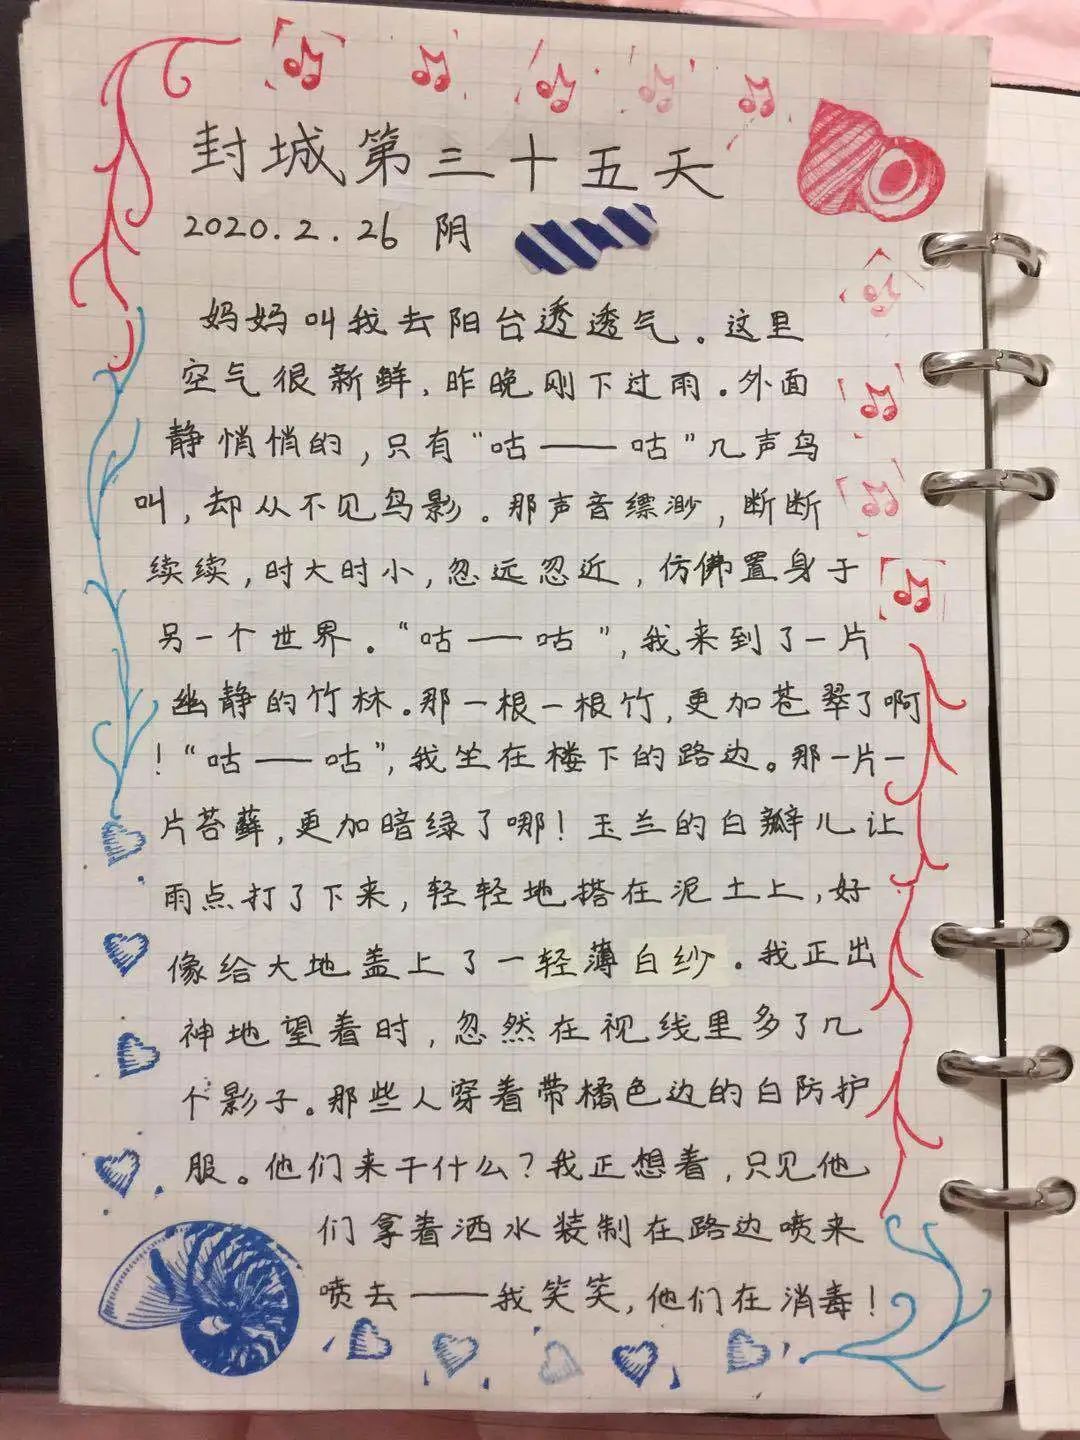 封城第三十五天
2020.2.26 阴
妈妈叫我去阳台透透气。这里
空气很新鲜，昨晚刚下过雨。外面
静悄悄的，只有“咕——咕”几声鸟
叫，却从不见鸟影。那声音缥渺，断断
续续，时大时小，忽远忽近，仿佛置身于
另一个世界。“咕——咕”，我来到了一片
幽静的竹林。那一根一根竹，更加苍翠了啊
！“咕——咕”，我坐在楼下的路边。那一片一
片苔藓，更加暗绿了哪！玉兰的白瓣儿让
雨点打了下来，轻轻地搭在泥土上，好
像给大地盖上了一轻薄白纱。我正出
神地望着时，忽然在视线里多了几
个影子。那些人穿着带橘色边的白防护
服。他们来干什么？我正想着，只见他
们拿着洒水装制在路边喷来
喷去——我笑笑，他们在消毒！